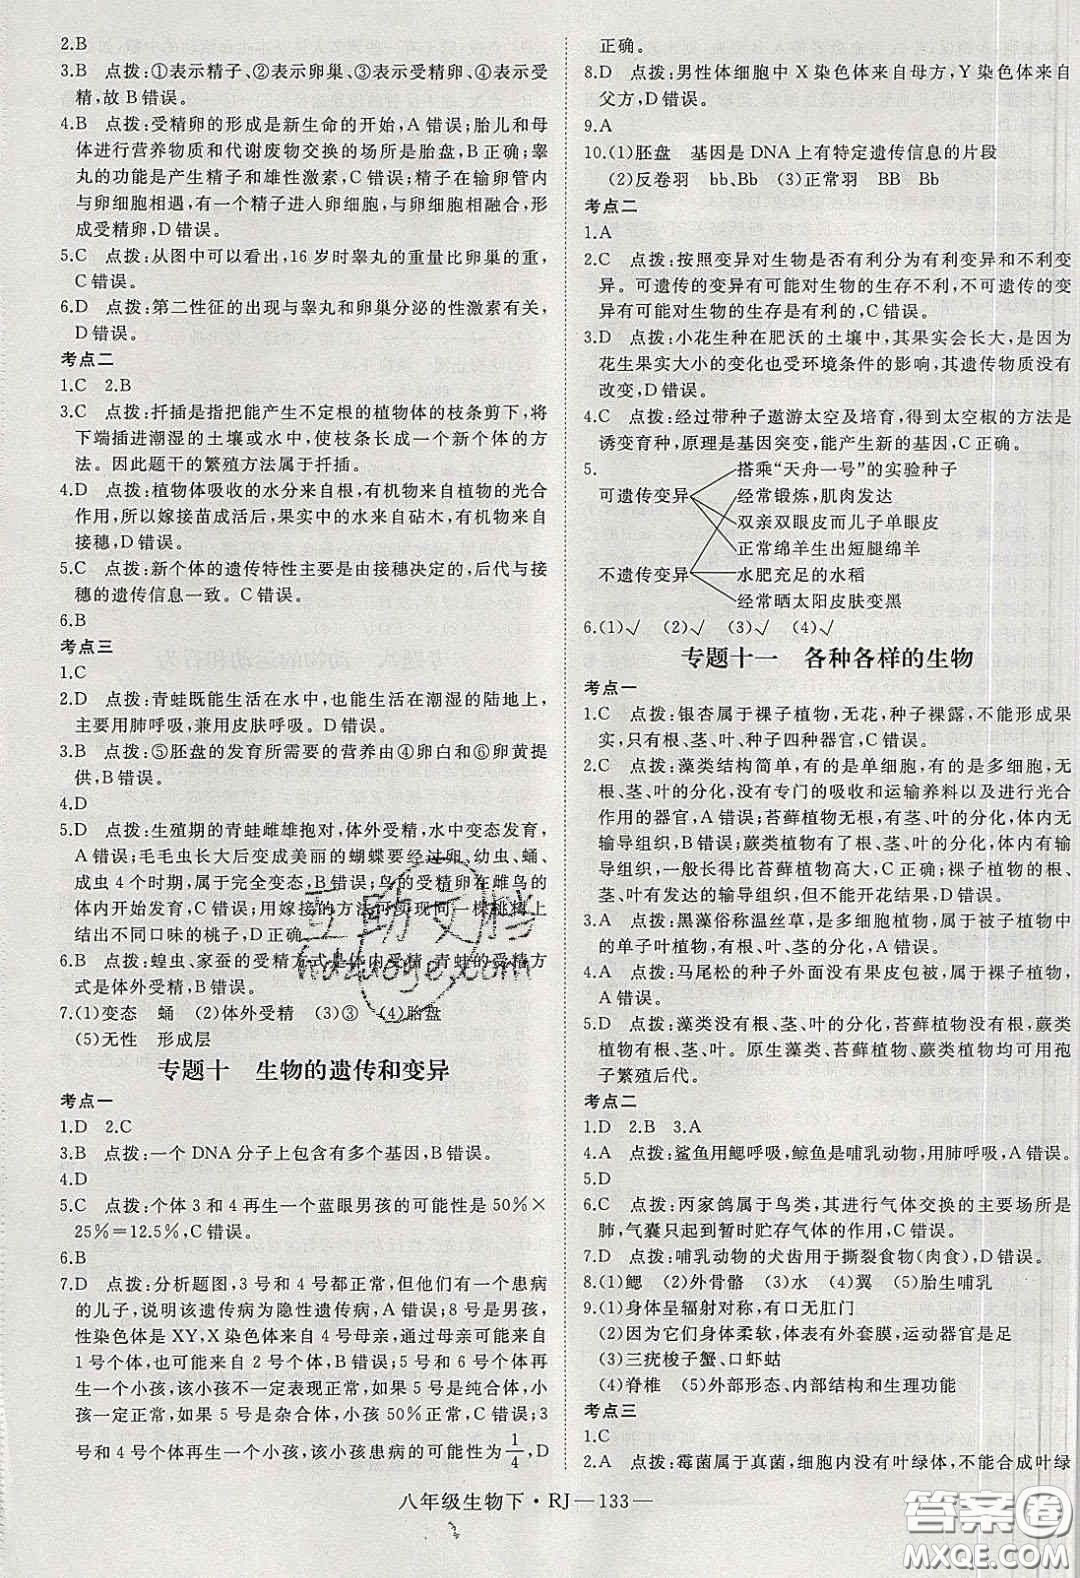 2.B
3.B 点拨:①表示精子、②表示卵巢、③表示受精卵、④表示受
精,故B错误。
4.B 点拨:受精卵的形成是新生命的开始,A错误;胎儿和母
体进行营养物质和代谢废物交换的场所是胎盘,B正确;睾
丸的功能是产生精子和雄性激素,C错误;精子在输卵管内
与卵细胞相遇,有一个精子进入卵细胞,与卵细胞相融合,形
成受精卵,D错误。
5.C 点拨:从图中可以看出,16岁时睾丸的重量比卵巢的重,
C错误。
6.D 点拨:第二性征的出现与睾丸和卵巢分泌的性激素有关,
D错误。
考点二
1.C 2.B
3.C 点拨:扦插是指把能产生不定根的植物体的枝条剪下,将
下端插进潮湿的土壤或水中,使枝条长成一个新个体的方
法。因此题干的繁殖方法属于扦插。
4.D 点拨:植物体吸收的水分来自根,有机物来自植物的光合
作用,所以嫁接苗成活后,果实中的水来自砧木,有机物来自
接穗,D错误。
5.C 点拨:新个体的遗传特性主要是由接穗决定的,后代与接
穗的遗传信息一致。C错误。
6.B
考点三
1.D
2.D 点拨:青蛙既能生活在水中,也能生活在潮湿的陆地上,
主要用肺呼吸,兼用皮肤呼吸。D错误。
3.B 点拨:⑤胚盘的发育所需要的营养由④卵白和⑥卵黄提
供,B错误。
4.D
5.D 点拨:生殖期的青蛙雌雄抱对,体外受精,水中变态发育,
A错误;毛毛虫长大后变成美丽的蝴蝶要经过卵、幼虫、蛹、
成虫4个时期,属于完全变态,B错误;鸟的受精卵在雌鸟的
体内开始发育,C错误;用嫁接的方法可实现同一棵桃树上
结出不同口味的桃子,D正确。
6.B 点拨:蝗虫、家蚕的受精方式是体内受精,青蛙的受精方
式是体外受精,B错误。
7.(1)变态 蛹 (2)体外受精 (3)③ (4)胎盘
(5)无性 形成层
专题十 生物的遗传和变异
考点一
1.D 2.C
3.B 点拨:一个DNA分子上包含有多个基因,B错误。
4.D
5.C 点拨:个体3和4再生一个蓝眼男孩的可能性是50%×
25%=12.5%,C错误。
6.B
7.D 点拨:分析题图,3号和4号都正常,但他们有一个患病
的儿子,说明该遗传病为隐性遗传病,A错误;8号是男孩,
性染色体是XY,X染色体来自4号母亲,母亲可能来自
1号个体,也可能来自2号个体,B错误;5号与6号个体再
生一个小孩,该小孩不一定表现正常,如果5号是纯合体,小
孩一定正常,如果5号是杂合体,小孩50%正常,C错误;3
号和4号个体再生一个小孩,该小孩患病的可能性为1/4,D
正确。
8.D 点拨:男性体细胞中X染色体来自母方,Y染色体来自
父方,D错误。
9.A
10.(1)胚盘 基因是DNA上有特定遗传信息的片段
(2)反卷羽 bb、Bb (3)正常羽 BB Bb
考点二
1.A
2.C 点拨:按照变异对生物是否有利分为有利变异和不利变
异。可遗传的变异有可能对生物的生存不利,不可遗传的变
异有可能对生物的生存是有利的。
3.D 点拨:小花生种在肥沃的土壤中,其果实会长大,是因为
花生果实大小的变化也受环境条件的影响,其遗传物质没有
改变,D错误。
4.C 点拨:经过带种子遨游太空及培育,得到太空椒的方法是
诱变育种,原理是基因突变,能产生新的基因,C正确。
5.
搭乘“天舟一号”的实验种子
可遗传变异
经常锻炼,肌肉发达
双亲双眼皮而儿子单眼皮
正常绵羊生出短腿绵羊
不遗传变异
水肥充足的水稻
经常晒太阳皮肤变黑
6.(1)√ (2)√ (3)√ (4)√
专题十一 各种各样的生物
考点一
1.C 点拨:银杏属于裸子植物,无花,种子裸露,不能形成果
实,只有根、茎、叶、种子四种器官,C错误。
2.C 点拨:藻类结构简单,有的是单细胞,有的是多细胞,无
根、茎、叶的分化,没有专门的吸收和运输养料以及进行光合
作用的器官,A错误;苔藓植物,有茎、叶的分化,体内无
输导组织,B错误;蕨类植物有了根、茎、叶的分化,体内有输
导组织,一般长得比苔藓植物高大,C正确;裸子植物有根、
茎、叶有发达的输导组织,但不能开花结果,D错误。
3.A 点拨:黑藻俗称温丝草,是多细胞植物,属于被子植物中
的单子叶植物,有根、茎、叶的分化,A错误。
4.A 点拨:马尾松的种子外面没有果皮包被,属于裸子植物,
A错误。
5.D 点拨:藻类没有根、茎、叶的分化,苔藓植物没有根,蕨类
植物有根、茎、叶。原生藻类、苔藓植物、蕨类植物均可用孢
子繁殖后代。
考点二
1.D 2.B 3.A
4.A 点拨:鲨鱼用鳃呼吸,鲸鱼是哺乳动物,用肺呼吸,A错误。
5.D
6.C 点拨:丙家鸽属于鸟类,其进行气体交换的主要场所是
肺,气囊只起到暂时贮存气体的作用,C错误。
7.D 点拨:哺乳动物的犬齿用于撕裂食物(肉食),D错误。
8.(1)鳃 (2)外骨骼 (3)水 (4)翼 (5)胎生哺乳
9.(1)身体呈辐射对称,有口无肛门
(2)因为它们身体柔软,体表有外套膜,运动器官是足
(3)三疣梭子蟹、口虾蛄
(4)脊椎 (5)外部形态、内部结构和生理功能
考点三
1.C
2.A 点拨:霉菌属于真菌,细胞内没有叶绿体,不能合成叶绿
八年级生物下·RJ—133—
互助文档
hdzuoye.com
答案圈
MXQE.COM